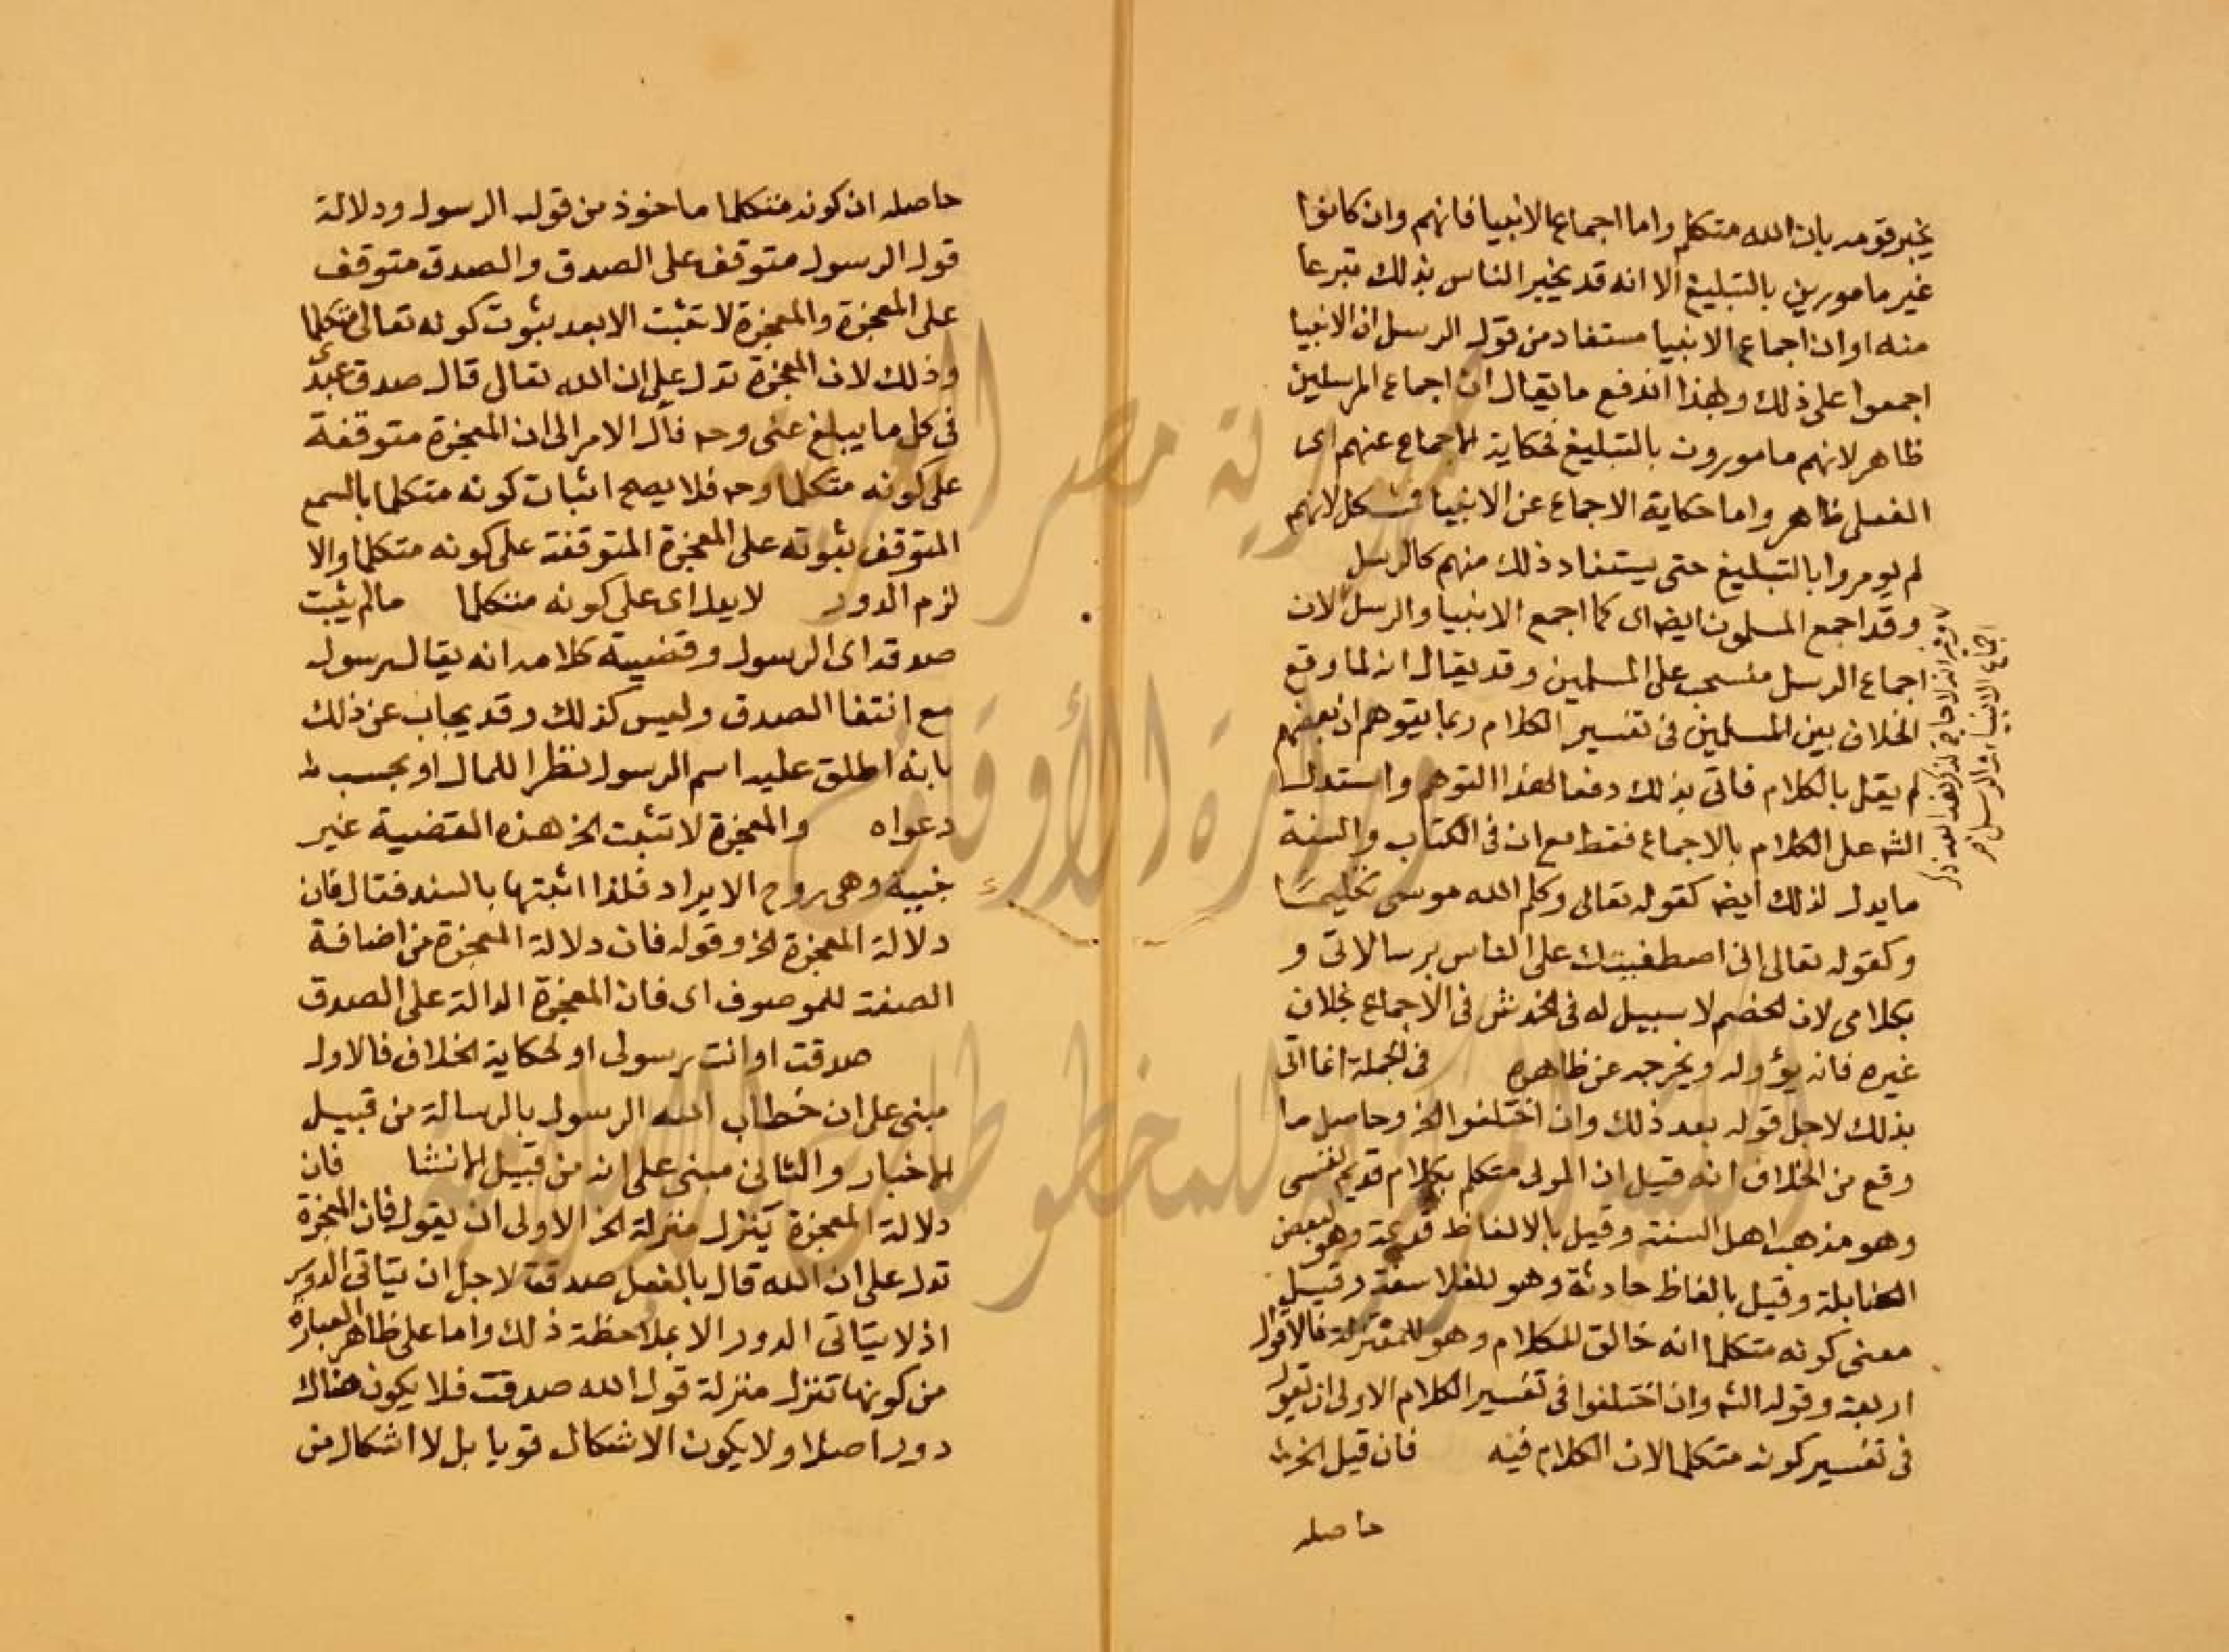 يخبر قومه بان الله متكلم واما اجماع الانبيا فانهم وان كانوا
غير مامورين بالتبليغ الا انه قد يخبر الناس بذلك تبرعا
منه او ان اجماع الانبيا مستفاد من قول الرسل ان الانبيا
اجمعوا على ذلك وبهذا اندفع ما يقال ان اجماع المرسلين
ظاهر لانهم مامورون بالتبليغ فحكاية الاجماع عنهم اى
الفعلى ظاهر واما حكاية الاجماع عن الانبيا فمشكل لانهم
لم يومروا بالتبليغ حتى يستفاد ذلك منهم كالرسل
وقد اجمع المسلمون ايضا اى كما اجمع الانبيا والرسل لان
اجماع الرسل منسحب على المسلمين وقد يقال انه لما وقع
الخلاف بين المسلمين فى تفسير الكلام ربما يتوهم ان بعضهم
لم يقل بالكلام فاتى بذلك دفعا لهذا التوهم واستدل
الشه على الكلام بالاجماع فقط مع ان فى الكتاب والسنة
ما يدل لذلك ايضا كقوله تعالى وكلم الله موسى تكليما
وكقوله تعالى انى اصطفيتك على الناس برسالاتى و
بكلامى لان الخصم لا سبيل له فى الخدش فى الاجماع بخلاف
غيره فانه يؤوله ويخرجه عن ظاهره فى الجملة انما اتى
بذلك لاجل قوله بعد ذلك وان اختلفوا الخ وحاصل ما
وقع من الخلاف انه قيل ان المولى متكلم بكلام قديم نفسى
وهو مذهب اهل السنة وقيل بالالفاظ قديمة وهو لبعض
الحنابلة وقيل بالفاظ حادثة وهو للفلاسفة وقيل
معنى كونه متكلما انه خالق للكلام وهو للمعتزلة فالاقوال
اربعة وقوله الشه وان اختلفوا فى تفسير الكلام الاولى ان تقول
فى تفسير كونه متكلما لان الكلام فيه فان قيل الخ
حاصله
اجماع الانبيا والرسل
حاصله ان كونه متكلما ماخوذ من قول الرسول ودلالة
قول الرسول متوقف على الصدق والصدق متوقف
على المعجزة والمعجزة لا تثبت الا بعد ثبوت كونه تعالى متكلما
وذلك لان المعجزة تدل على ان الله تعالى قال صدق عبدى
فى كل ما يبلغ عنى وحـ فآل الامر الى ان المعجزة متوقفة
على كونه متكلما وحـ فلا يصح اثبات كونه متكلما بالسمع
المتوقف ثبوته على المعجزة المتوقفة على كونه متكلما والا
لزم الدور لا يدل اى على كونه متكلما ما لم يثبت
صدقه اى الرسول وقضية كلامه انه يقال رسول
مع انتفا الصدق وليس كذلك وقد يجاب عن ذلك
بانه اطلق عليه اسم الرسول نظرا للمال او بحسب
دعواه والمعجزة لا تثبت الخ هذه القضية غير
بينة وهى روح الايراد فلذا اثبتها بالسند فقال فان
دلالة المعجزة الخ وقوله فان دلالة المعجزة من اضافة
الصفة للموصوف اى فان المعجزة الدالة على الصدق
صدقت او انت رسولى او لحكاية الخلاف فالاول
مبنى على ان خطاب الله الرسول بالرسالة من قبيل
الاخبار والثانى مبنى على انه من قبيل الانشا فان
دلالة المعجزة يتنزل منزلة الخ الاولى ان يقول فان المعجزة
تدل على ان الله قال بالفعل صدقت لاجل ان يتاتى الدور
اذ لا يتاتى الدور الا بملاحظة ذلك واما على ظاهر العبارة
من كونها تنزل منزلة قول الله صدقت فلا يكون هناك
دور اصلا ولا يكون الاشكال قويا بل لا اشكال من
جمهورية مصر العربية
وزارة الأوقاف
المكتبة المركزية للمخطوطات الإسلامية